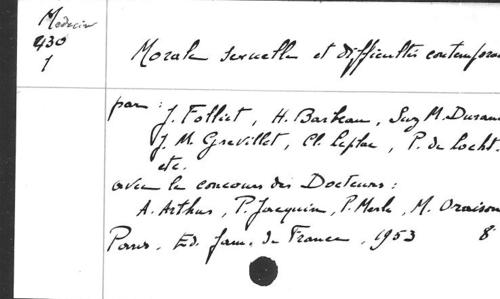 Medecin
930
1
Morale sexuelle et difficultés contempora
par : J. Folliet, H. Barbeau, Suz M. Durand
J. M. Grevillet, Cl. Leplae, P. de Locht.
etc.
avec le concours des Docteurs :
A. Arthus, P. Jacquin, P. Merle, M. Oraison
Paris, Ed. fam. de France, 1953 8